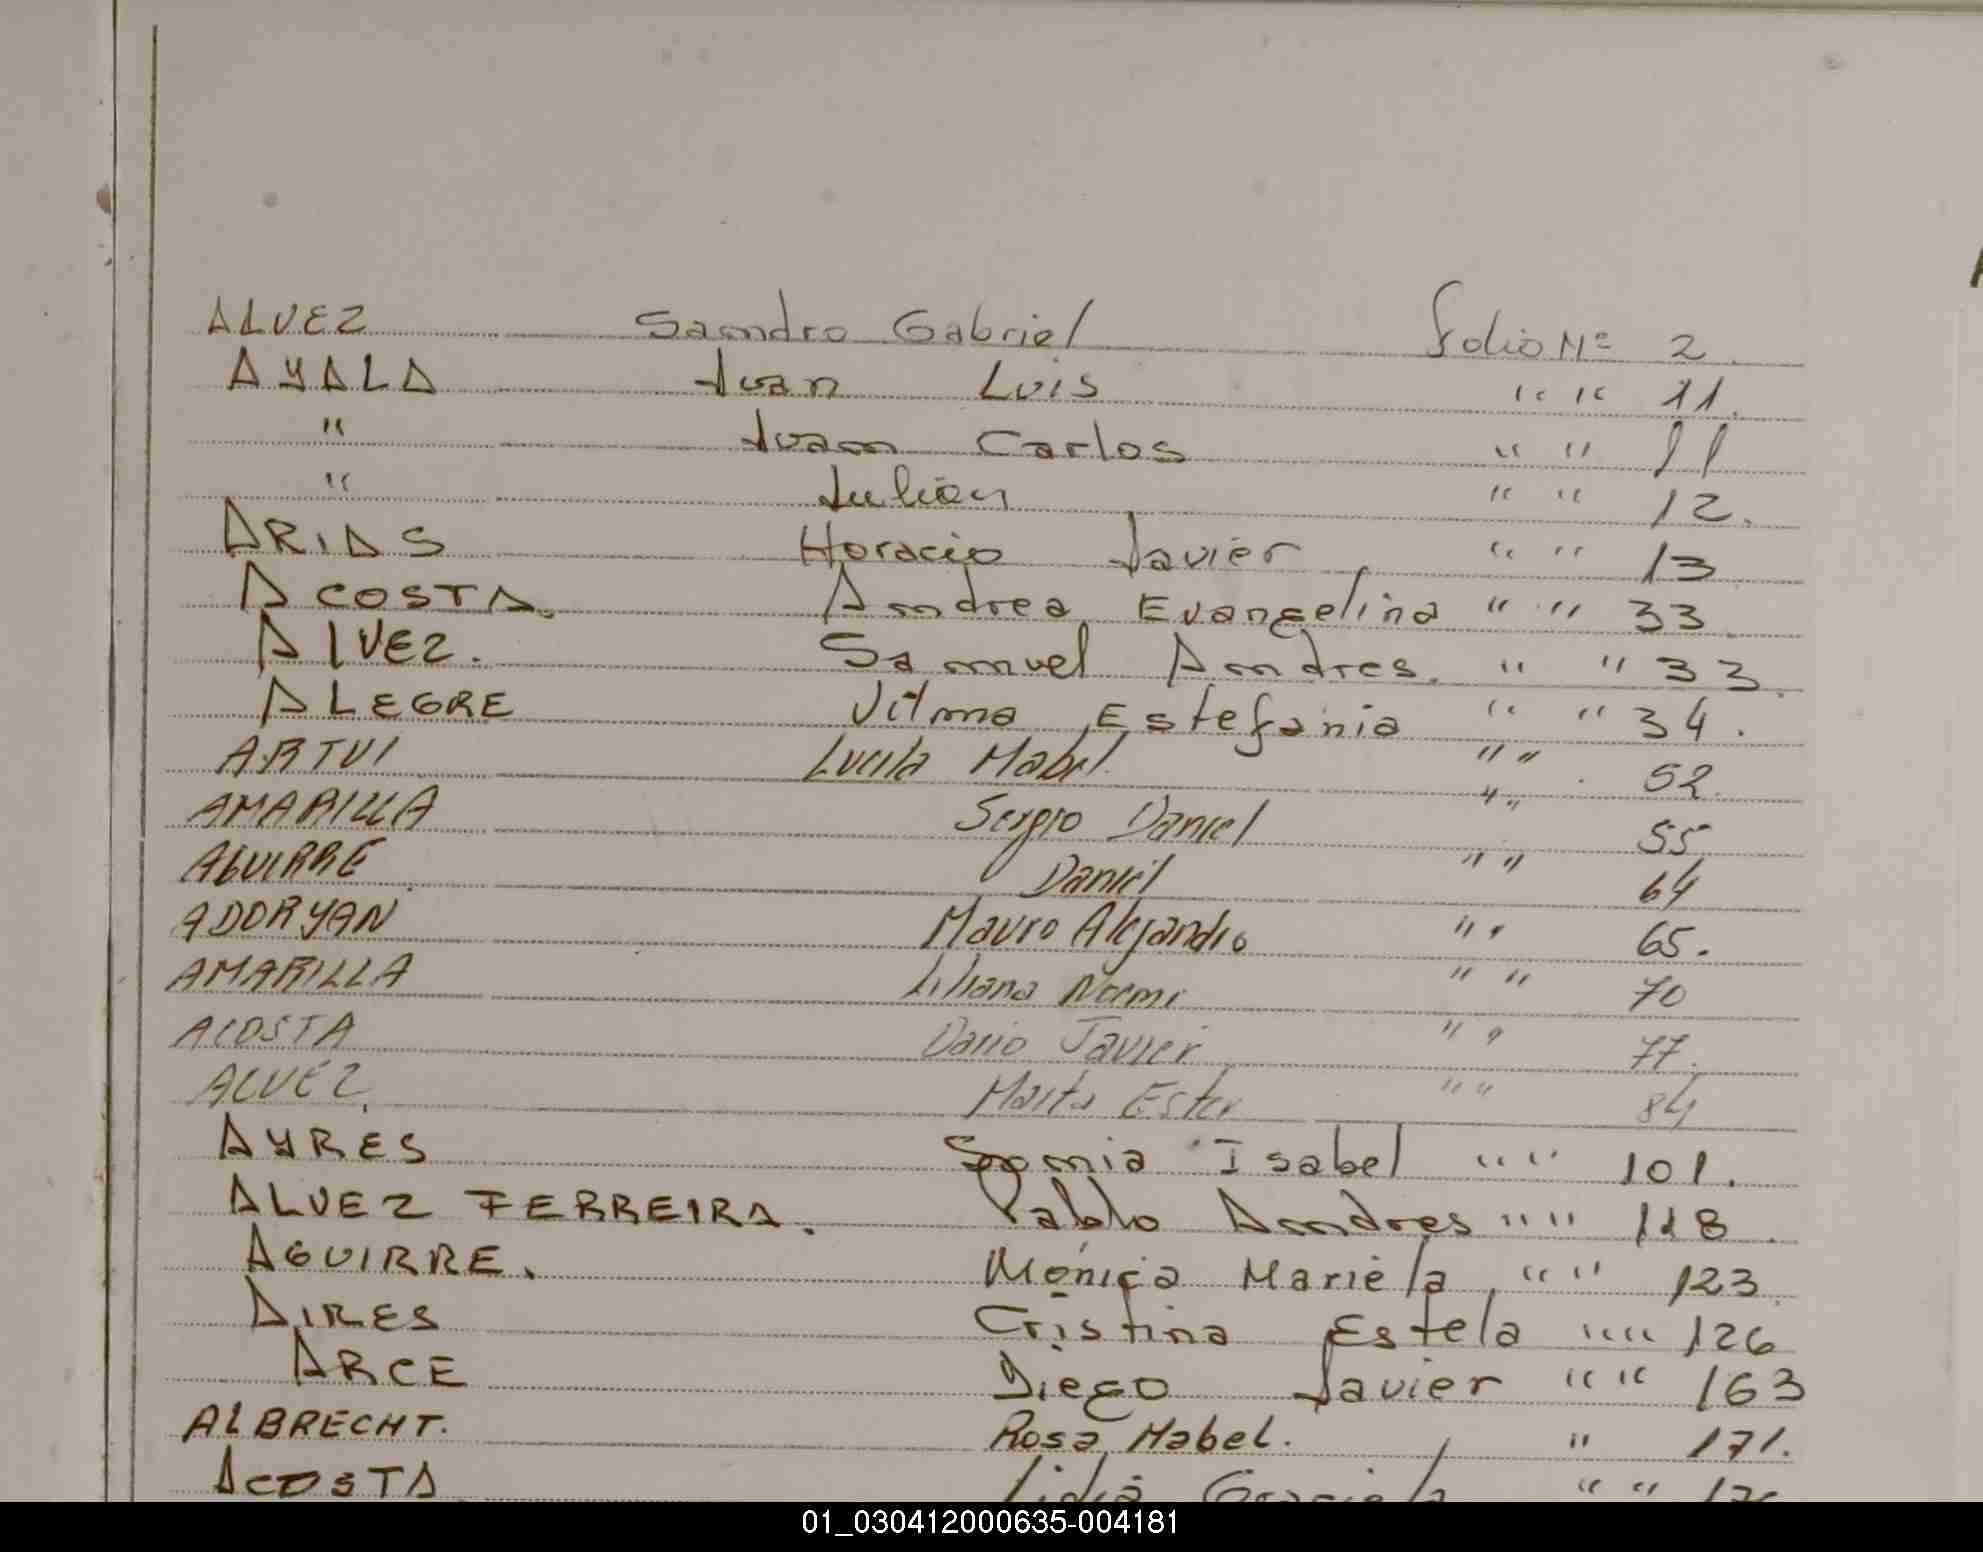 ALVEZ Sandro Gabriel Folio Nº 2
AYALA Juan Luis " " 11.
" Juan Carlos " " 11
" Julián " " 12.
ARIAS Horacio Javier " " 13
ACOSTA. Andrea Evangelina " " 33
AlVEZ. Samuel Andres. " " 33.
ALEGRE Vilma Estefania " " 34.
ARTUI Lucila Mabel. " " 52.
AMARILLA Sergio Daniel " " 55
AGUIRRE Daniel " " 64
ADORYAN Mauro Alejandro " " 65.
AMARILLA Liliana Noemi " " 70
ACOSTA Dario Javier " " 77.
ALVEZ. Marta Ester " " 84
AYRES Sonia Isabel " " 101.
ALVEZ FERREIRA. Pablo Andres " " 118.
AGUIRRE. Mónica Mariela " " 123.
AIRES Cristina Estela " " 126
ARCE Diego Javier " " 163
ALBRECHT. Rosa Mabel. " 171.
ACOSTA Lidia Graciela " "
01_030412000635-004181